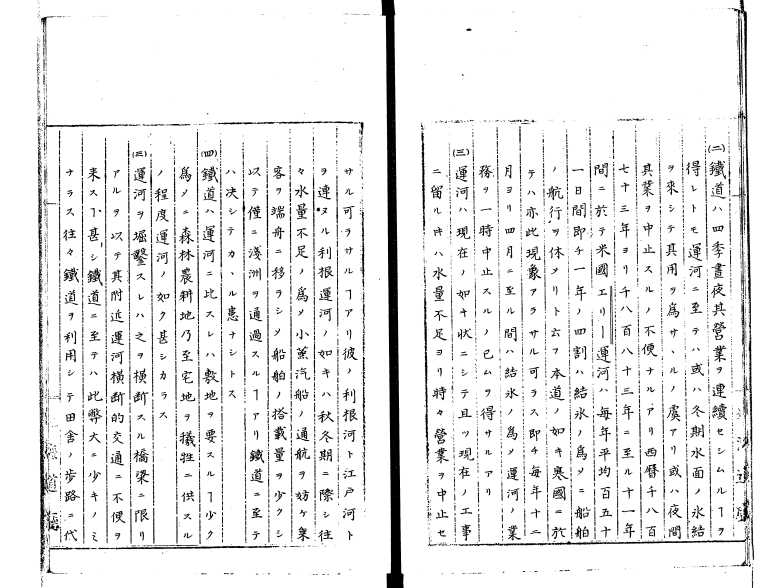 (二)鐵道ハ四季晝夜其營業ヲ連續セシムルヿヲ
得レトモ運河ニ至テハ或ハ冬期水面ノ氷結
ヲ來シテ其用ヲ為サヽルノ虞アリ或ハ夜間
其業ヲ中止スルノ不便ナルアリ西曆千八百
七十三年ヨリ千八百八十三年ニ至ル十一年
間ニ於テ米國エリー運河ハ毎年平均百五十
一日間即チ一年ノ四割ハ結氷ノ為メニ船舶
ノ航行ヲ休メリト云フ本道ノ如キ寒國ニ於
テハ亦此現象アラサル可ラス即チ毎年十二
月ヨリ四月ニ至ル間ハ結氷ノ為メ運河ノ業
務ヲ一時中止スルノ已ムヲ得サルアリ
(三)運河ハ現在ノ如キ狀ニシテ且ツ現在ノ工事
ニ留ルトキハ水量不足ヨリ時々營業ヲ中止セ
サル可ラサルヿアリ彼ノ利根河ト江戸河ト
ヲ連ヌル利根運河ノ如キハ秋冬期ニ際シ往
々水量不足ノ為メ小蒸汽船ノ通航ヲ妨ケ乗
客ヲ端舟ニ移ラシメ船舶ノ搭載量ヲ少クシ
以テ僅ニ淺洲ヲ通過スルヿアリ鐵道ニ至テ
ハ决シテカヽル患ナシトス
(四)鐵道ハ運河ニ比スレハ敷地ヲ要スルヿ少ク
為メニ森林農耕地乃至宅地ヲ犠牲ニ供スル
ノ程度運河ノ如ク甚シカラス
運河ヲ堀鑿スレハ之ヲ横断スル橋梁ニ限リ
アルヲ以テ其附近運河横断的交通ニ不便ヲ
来スヿ甚シ鐵道ニ至テハ此弊大ニ少キノミ
ナラス往々鐵道ヲ利用シテ田舎ノ歩路ニ代